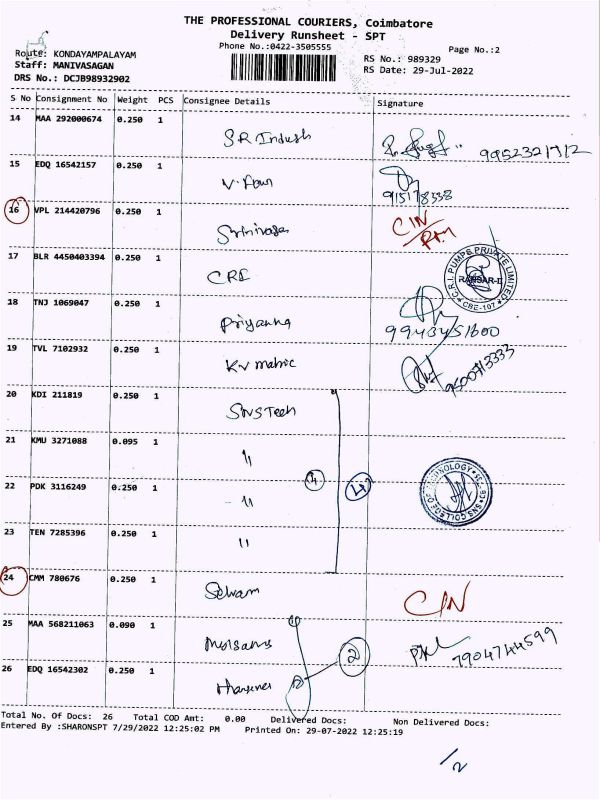 THE PROFESSIONAL COURIERS, Coimbatore
Delivery Runsheet - SPT
Phone No.:0422-3505555
Page No.:2
Route: KONDAYAMPALAYAM
Staff: MANIVASAGAN
DRS No.: DCJB98932902
RS No.: 989329
RS Date: 29-Jul-2022
S No Consignment No Weight PCS Consignee Details Signature
14 MAA 292000674 0.250 1 SR Indush
15 EDQ 16542157 0.250 1
16 VPL 214420796 0.250 1 Srinivasan CIN
17 BLR 4450403394 0.250 1 CRI C.R.I. PUMPS PRIVATE LIMITED CBE-107
18 TNJ 1069047 0.250 1 Priyanka
19 TVL 7102932 0.250 1 KV matric 9500713333
20 KDI 211819 0.250 1 SNS Tech
21 KMU 3271088 0.095 1 "
22 PDK 3116249 0.250 1 - " 4 4 SNS COLLEGE OF TECHNOLOGY
23 TEN 7285396 0.250 1 "
24 CMM 780676 0.250 1 Selvam CIN
25 MAA 568211063 0.090 1 7904744599
26 EDQ 16542302 0.250 1 2
Total No. Of Docs: 26 Total COD Amt: 0.00 Delivered Docs: Non Delivered Docs:
Entered By :SHARONSPT 7/29/2022 12:25:02 PM Printed On: 29-07-2022 12:25:19
1/2